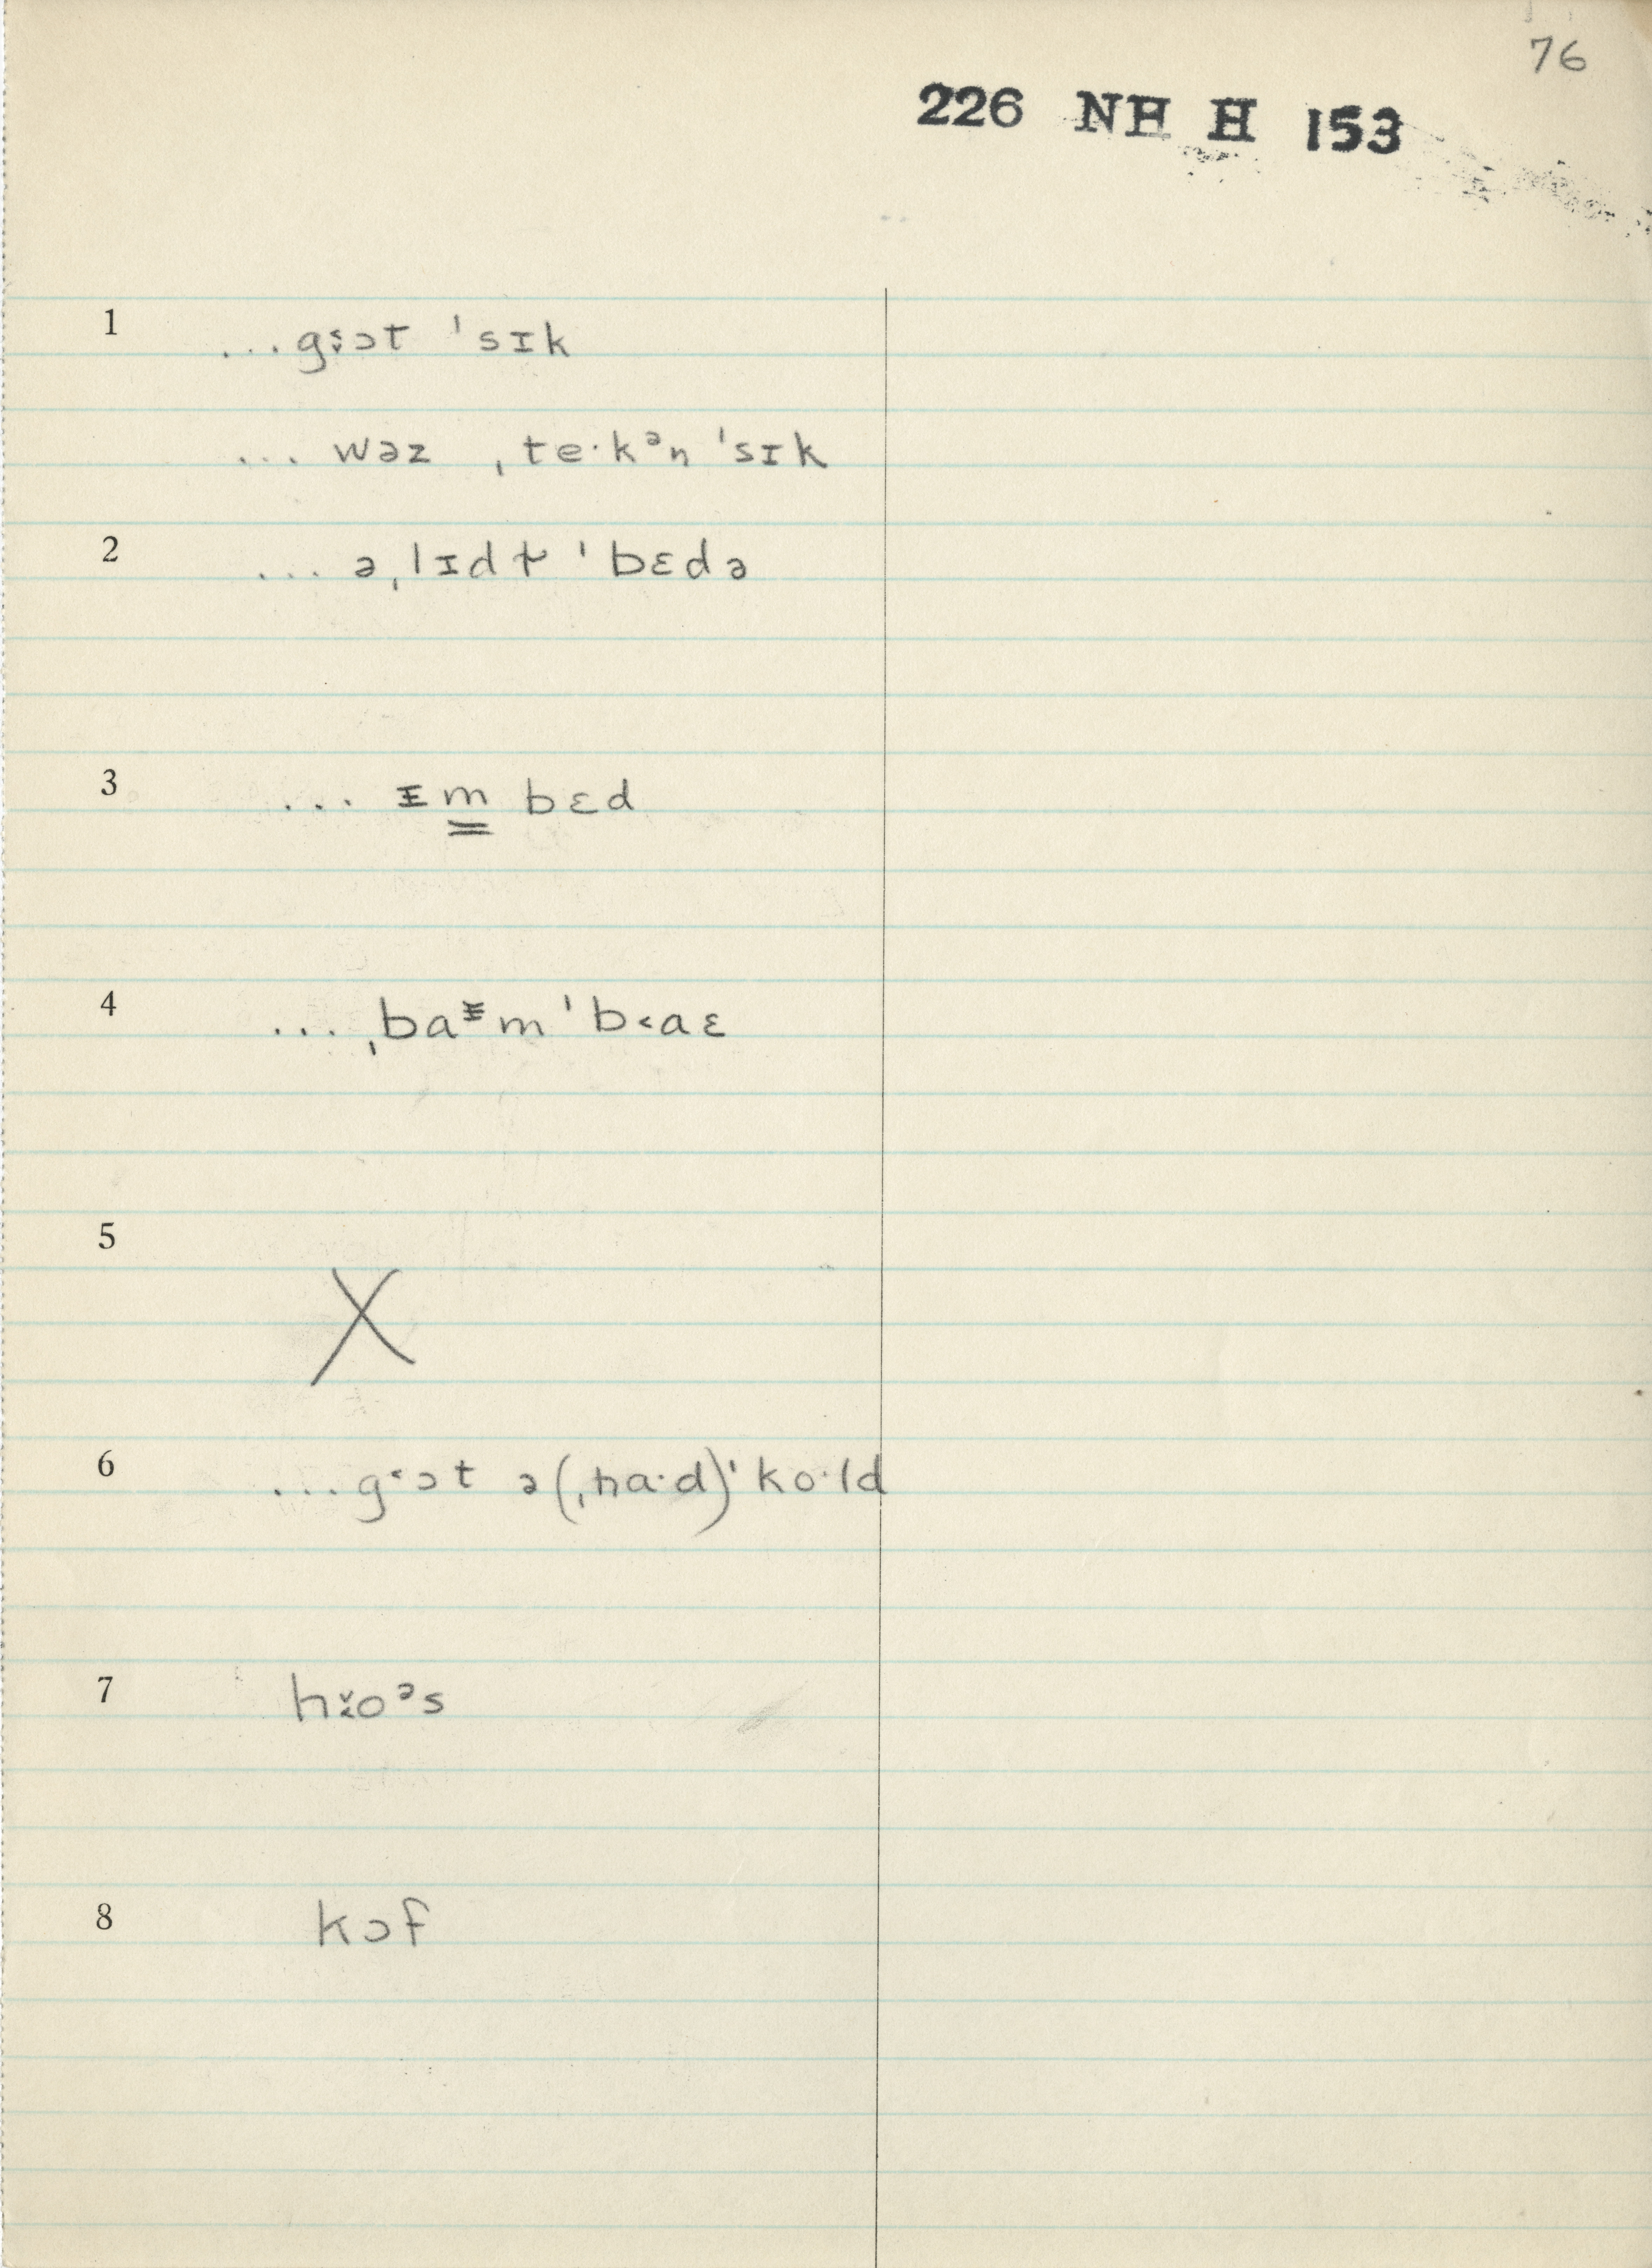 76
226 NH H 153
1 ...gɔt ˈsɪk
... wəz ˌte·kᵊn ˈsɪk
2 ... əˌlɪdɫ ˈbɛdə
3 ... ɪm bɛd
4 ... ˌbaᵻm ˈb˂aɛ
5 X
6 ...g˂ɔt ə(ˌha·d)ˈko·ld
7 hoᵊs
8 kɔf